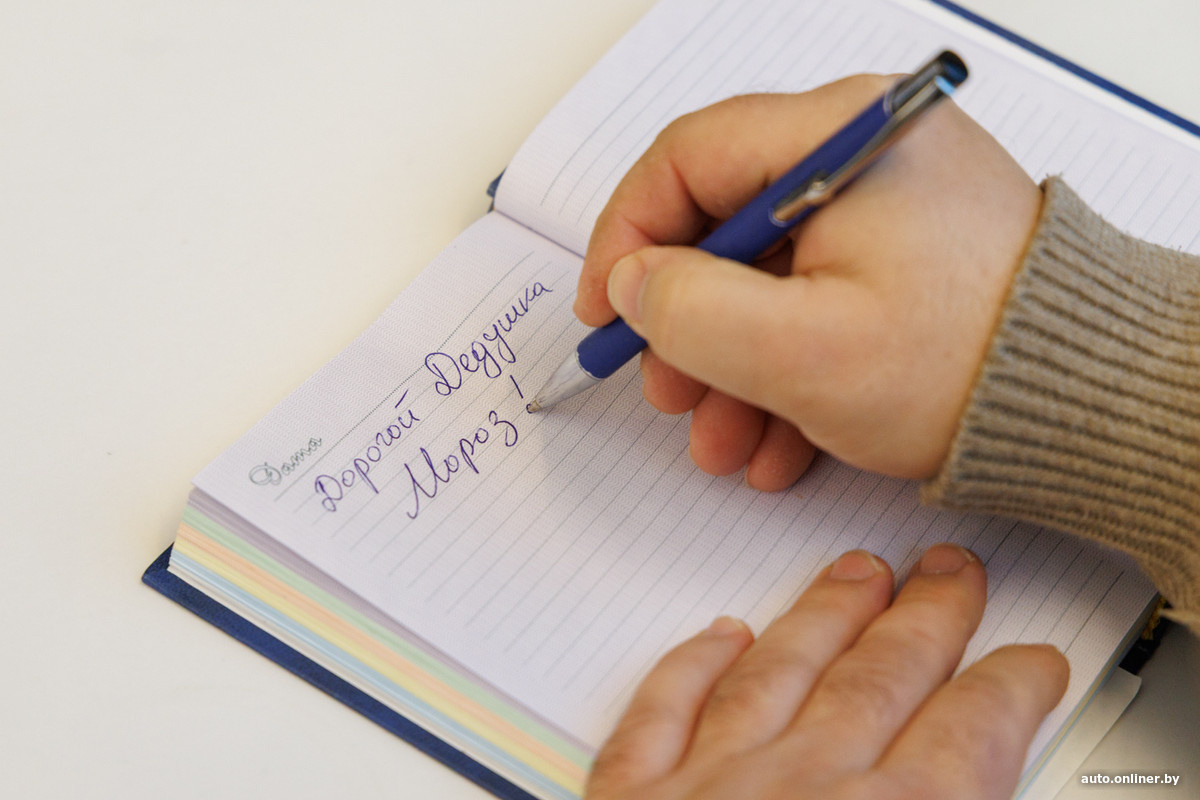 Дата
Дорогой Дедушка
Мороз!
auto.onliner.by